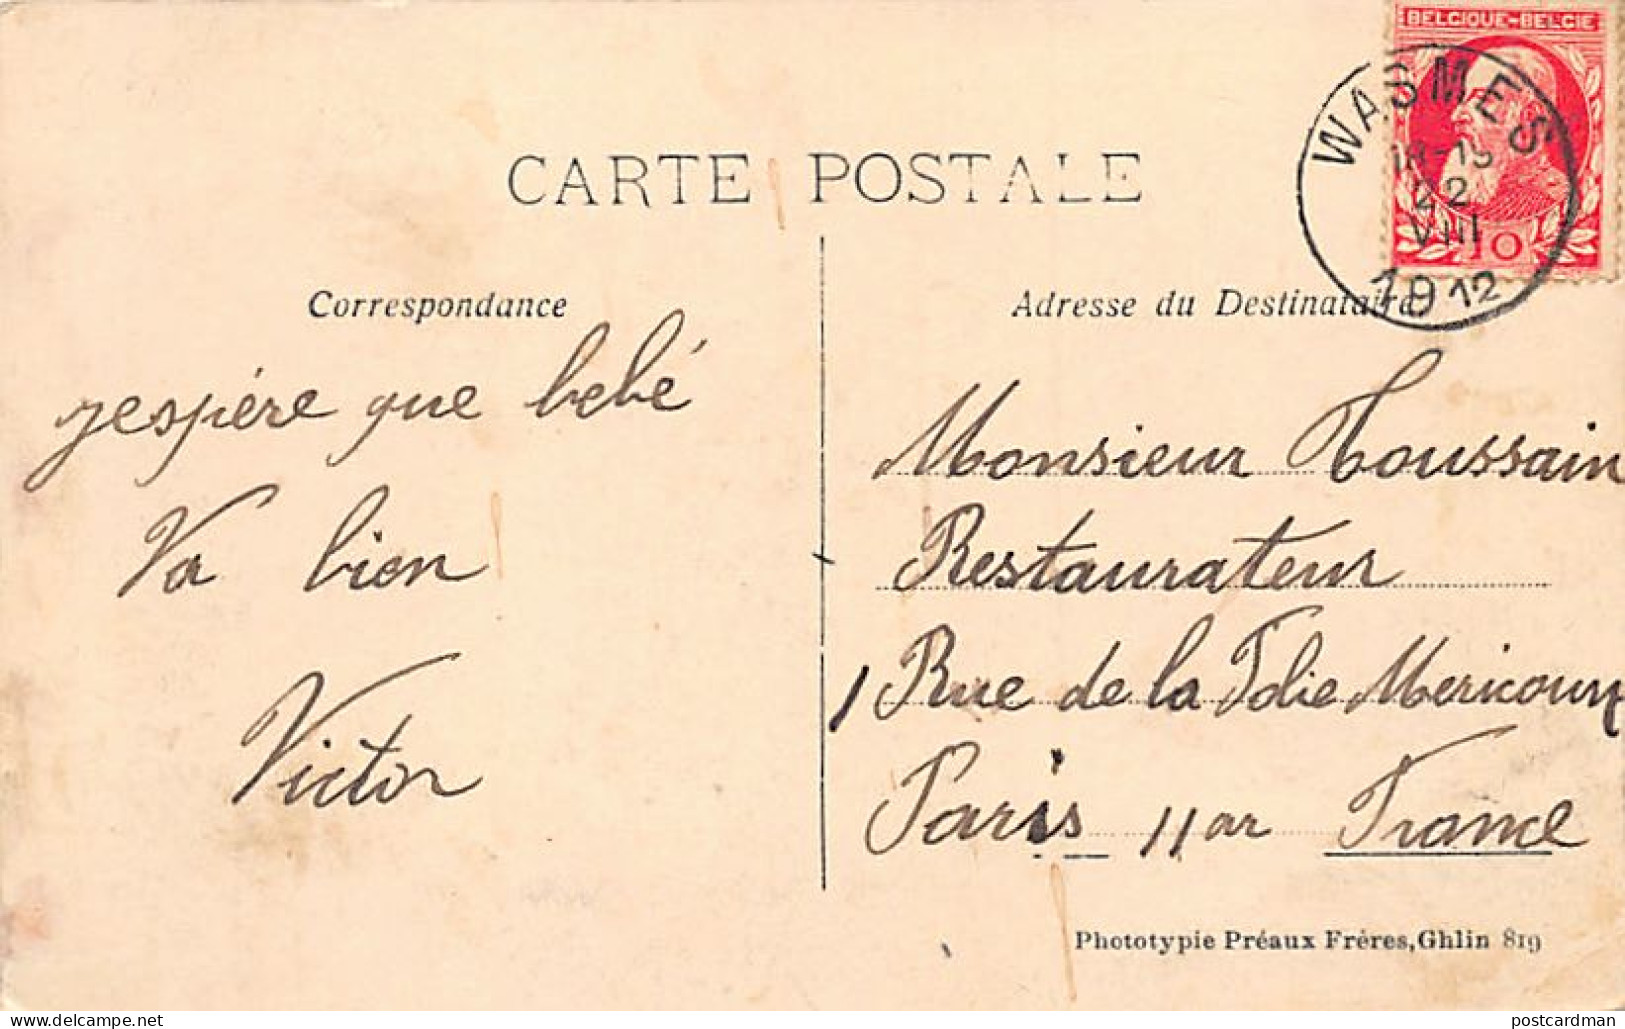 BELGIQUE-BELGIE
WASMES
22
VIII
1912
10
CARTE POSTALE
Correspondance
Adresse du Destinataire
jespére que bebé
Va bien
Victor
Monsieur Toussain
Restaurateur
1 Rue de la Folie Mericourt
Paris 11 ar France
Phototypie Préaux Frères, Ghlin 819
delcampe.net
postcardman